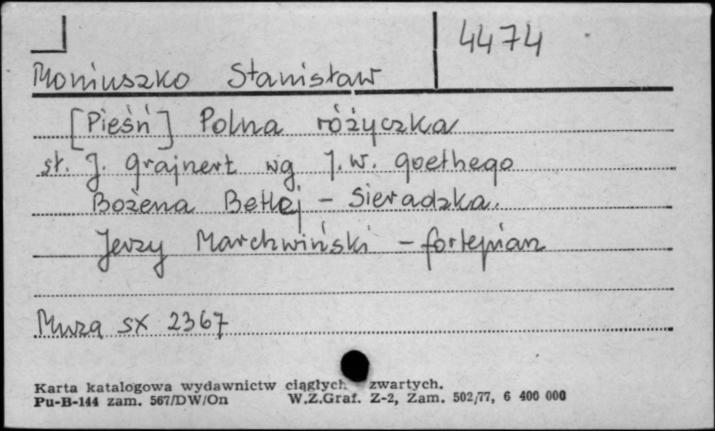 4474
Moniuszko Stanisław
[Pieśń] Polna różyczka
sł. J. Grajnert wg J. W. Goethego
Bożena Betlej - Sieradzka.
Jerzy Marchwiński - fortepian
Muza SX 2367
Karta katalogowa wydawnictw ciągłych zwartych.
Pu-B-144 zam. 567/DW/On W.Z.Graf. Z-2, Zam. 502/77, 6 400 000